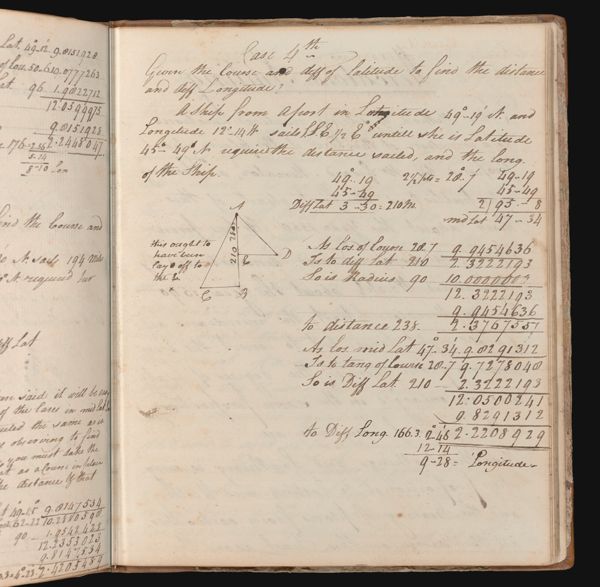 Lat. 49-12 9.8151928
of Cou. 50-6 10.0777263
Lat. 96 1.9822712
12.0599975
9.8151928
176 2.56 2.2448047
5-14
8-10 Lon
find the Course and
N sail 194 Miles
N. required her
Diff Lat
said it will be
of the Cases in mid Lat
the same as in
observing to find
you must take the
as a Course in
the distance of that
49-15 9.8147534
62-22 10.2808590
90 1.0542428
12.3353023
9.8147534
2.4205459
Case 4th
Given the Course and diff of Latitude to find the distance
and diff Longitude?
A Ship from a port in Longitude 49°-19' N. and
Longitude 12°-14 W sails S.S.E ½ E untill she is Latitude
45°-49' N require the distance sailed, and the Long.
of the Ship.
49-19 2½ pts = 28.7 49-19
45-49 45-49
Diff Lat 3-30 = 210 M. 2)95-8
mid Lat 47-34
A
210
this ought to
have been
layd off to
the E.
E
D
C
B
As Cos of Course 28.7 9.9454636
Is to diff Lat 210 2.3222193
So is Radius 90 10.0000000
12.3222193
9.9454636
to distance 238. 2.3767557
As Cos. mid Lat 47-34 9.8291312
Is to tang of Course 28-7 9.7278048
So is Diff Lat. 210 2.3222193
12.0500241
9.8291312
to Diff Long. 166.3. 2.48 2.2208929
12-14
9-28 = Longitude